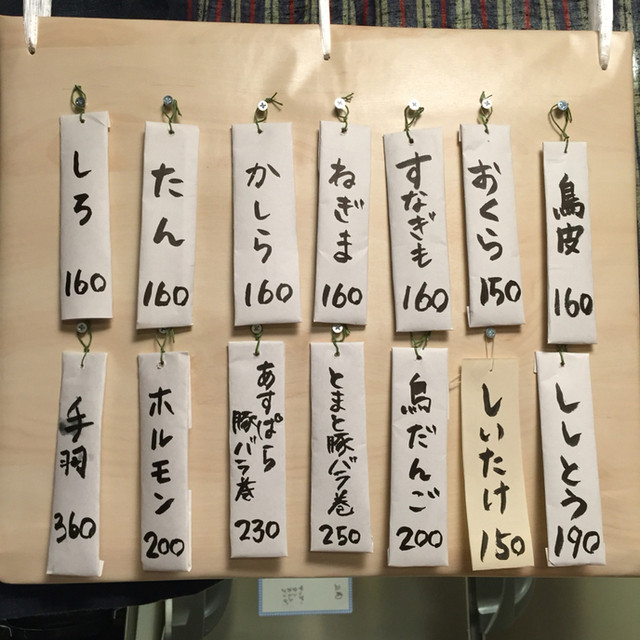 しろ
160
たん
160
かしら
160
ねぎま
160
すなぎも
160
おくら
150
鳥皮
160
手羽
360
ホルモン
200
あすぱら
豚バラ巻
230
とまと豚バラ巻
250
鳥だんご
200
しいたけ
150
ししとう
190